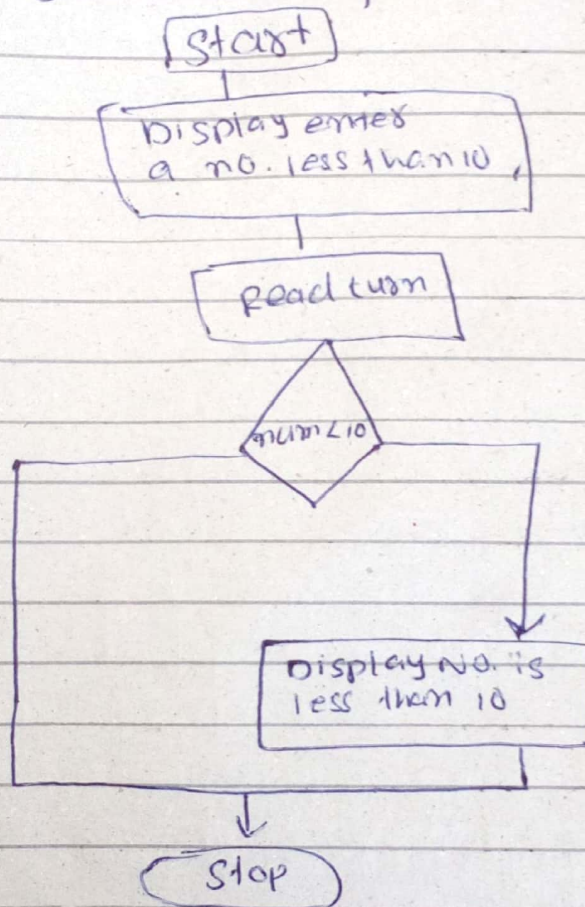 Start
Display enter
a no. less than 10,
Read turn
num < 10
Display No. is
less than 10
Stop